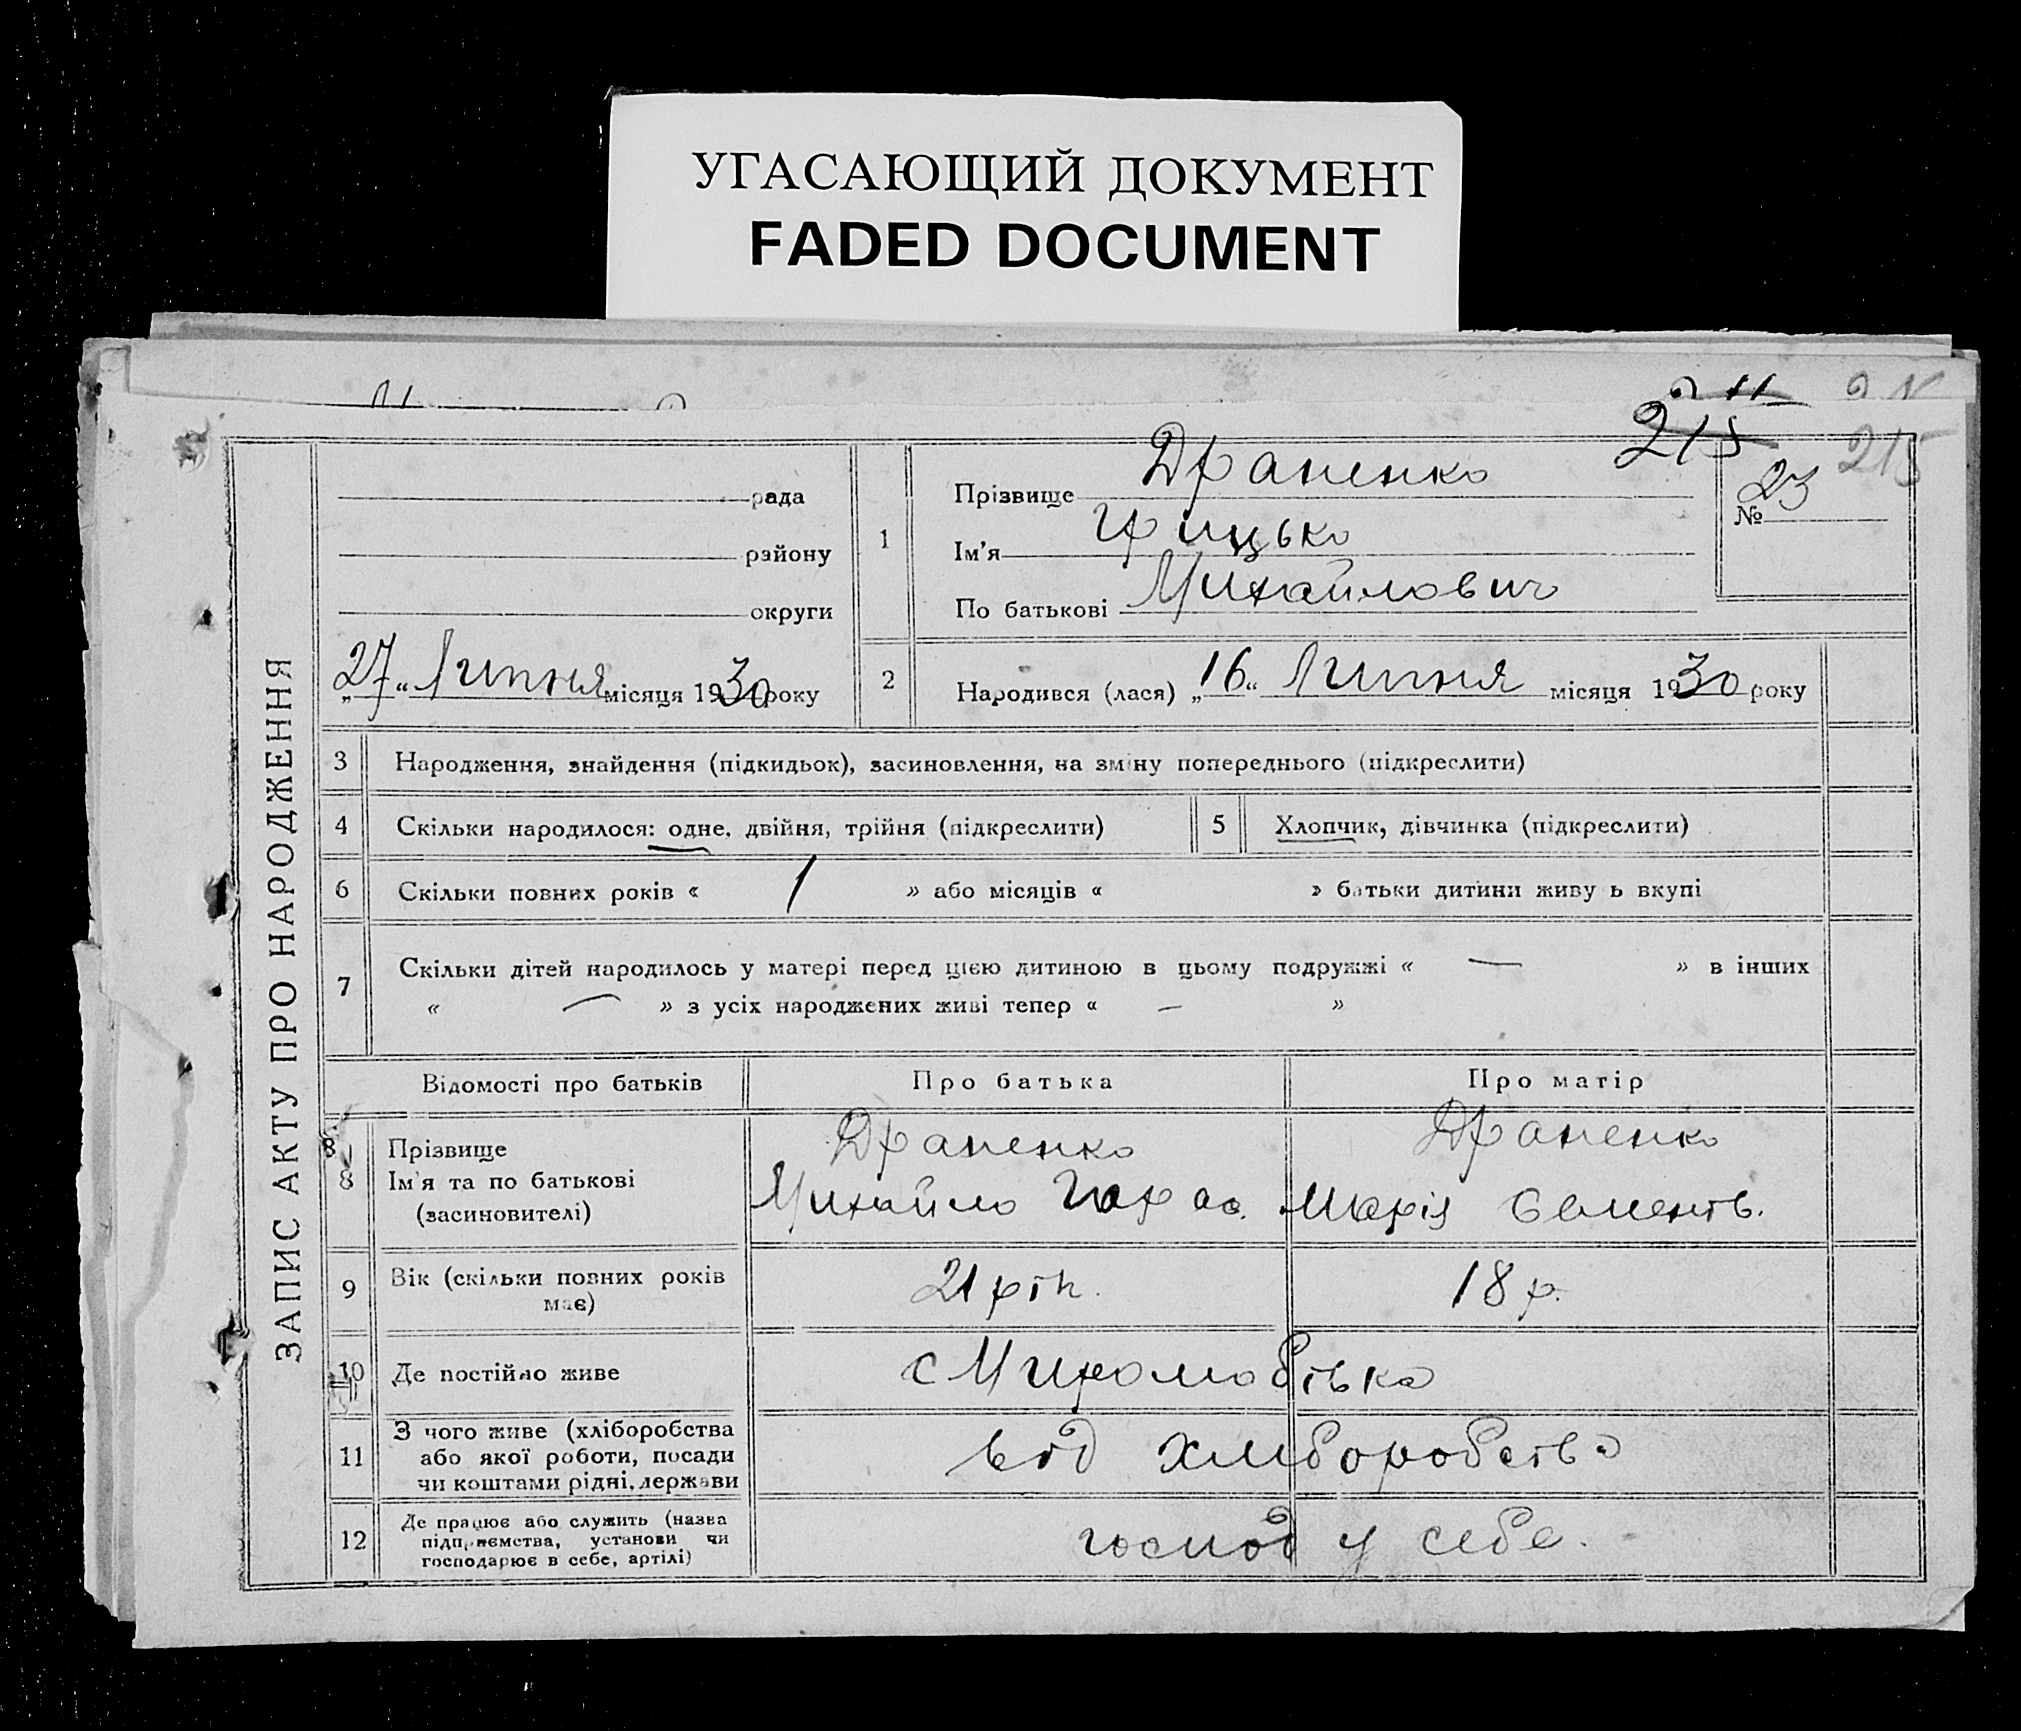 УГАСАЮЩИЙ ДОКУМЕНТ
FADED DOCUMENT
211
215
215
ЗАПИС АКТУ ПРО НАРОДЖЕННЯ
рада
району
округи
„27“ Липня місяця 1930 року
1
Прізвище Драненко
Ім'я Грицько
По батькові Михайлович
№ 23
2
Народився (лася) „16“ Липня місяця 1930 року
3 Народження, знайдення (підкидьок), засиновлення, на зміну попереднього (підкреслити)
4 Скільки народилося: одне, двійня, трійня (підкреслити)
5 Хлопчик, дівчинка (підкреслити)
6 Скільки повних років « 1 » або місяців « » батьки дитини живу ь вкупі
7 Скільки дітей народилось у матері перед цією дитиною в цьому подружжі « — » в інших
« — » з усіх народжених живі тепер « — »
Відомості про батьків
Про батька
Про матір
8
8
Прізвище
Ім'я та по батькові
(засиновителі)
Драненко
Михайло Тарас.
Драненко
Марія Сементв.
9 Вік (скільки повних років
має)
21 рік.
18 р.
10 Де постійно живе
с Миколаївка
11
З чого живе (хліборобства
або якої роботи, посади
чи коштами рідні, держави
від хліборобства
12
Де працює або служить (назва
підприємства, установи чи
господарює в себе, артілі)
господ у себе.